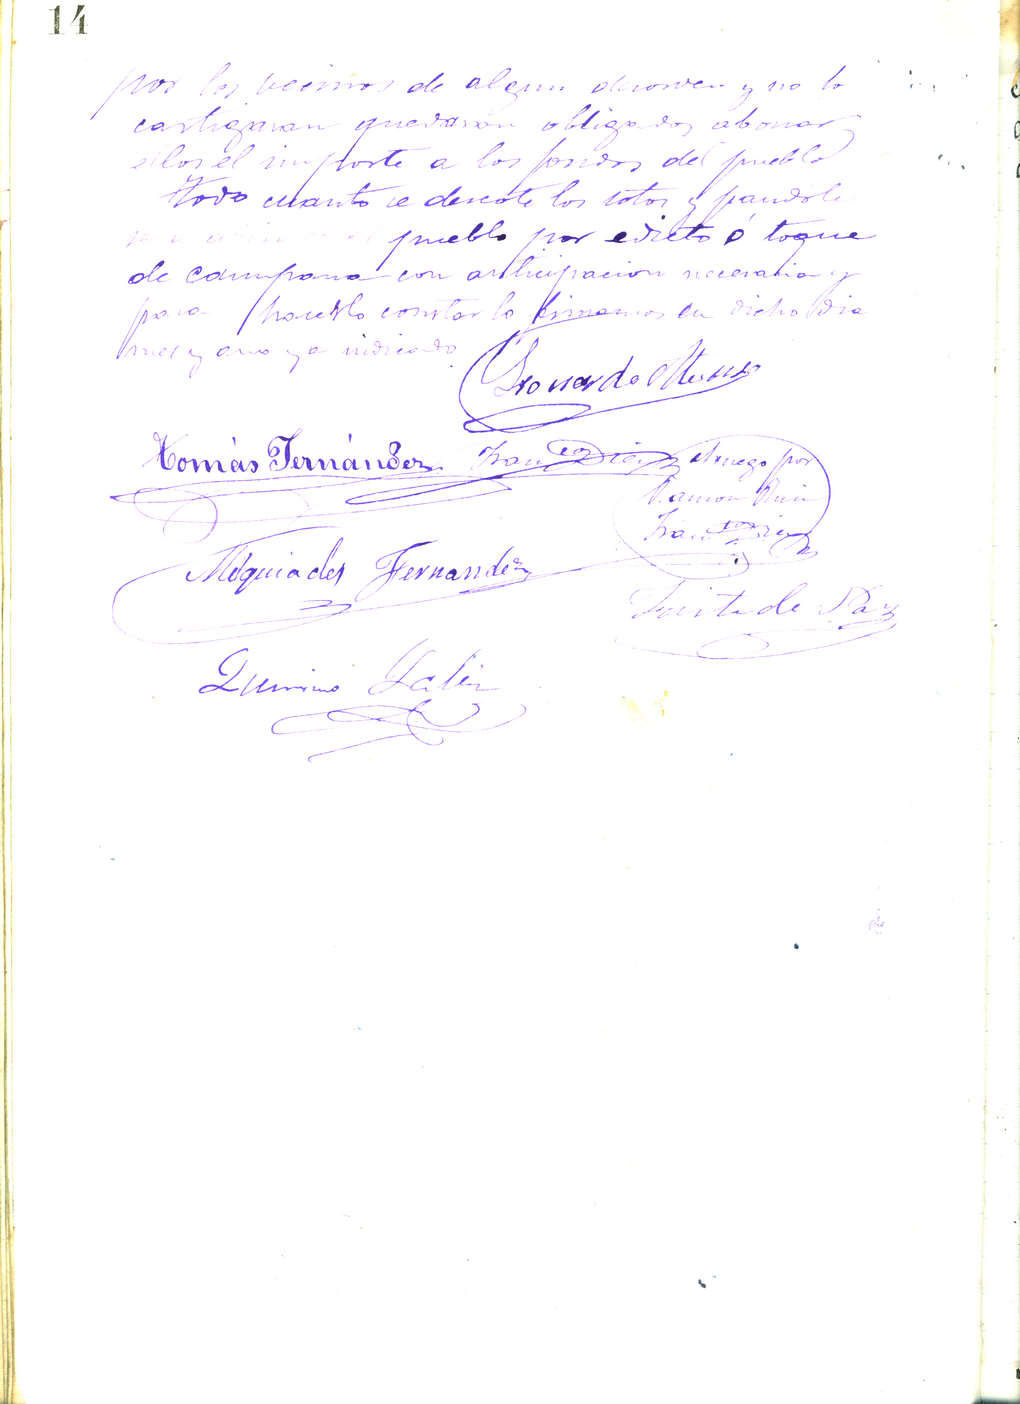 14
por los vecinos de algun desorden y no lo
castigaran quedaran obligados abonar
ellos el importe a los fondos del pueblo
Todo cuanto se descote los cotos y
pueblo por edicto ó toque
de campana con anticipacion necesaria y
para hacerlo constar lo firmamos en dicho dia
mes y ano ya indicado
Leonardo
Tomás Fernández Franco Diez Aruego por
Ramon
Franco Diez
Melquiades Fernandez
de
Quirino